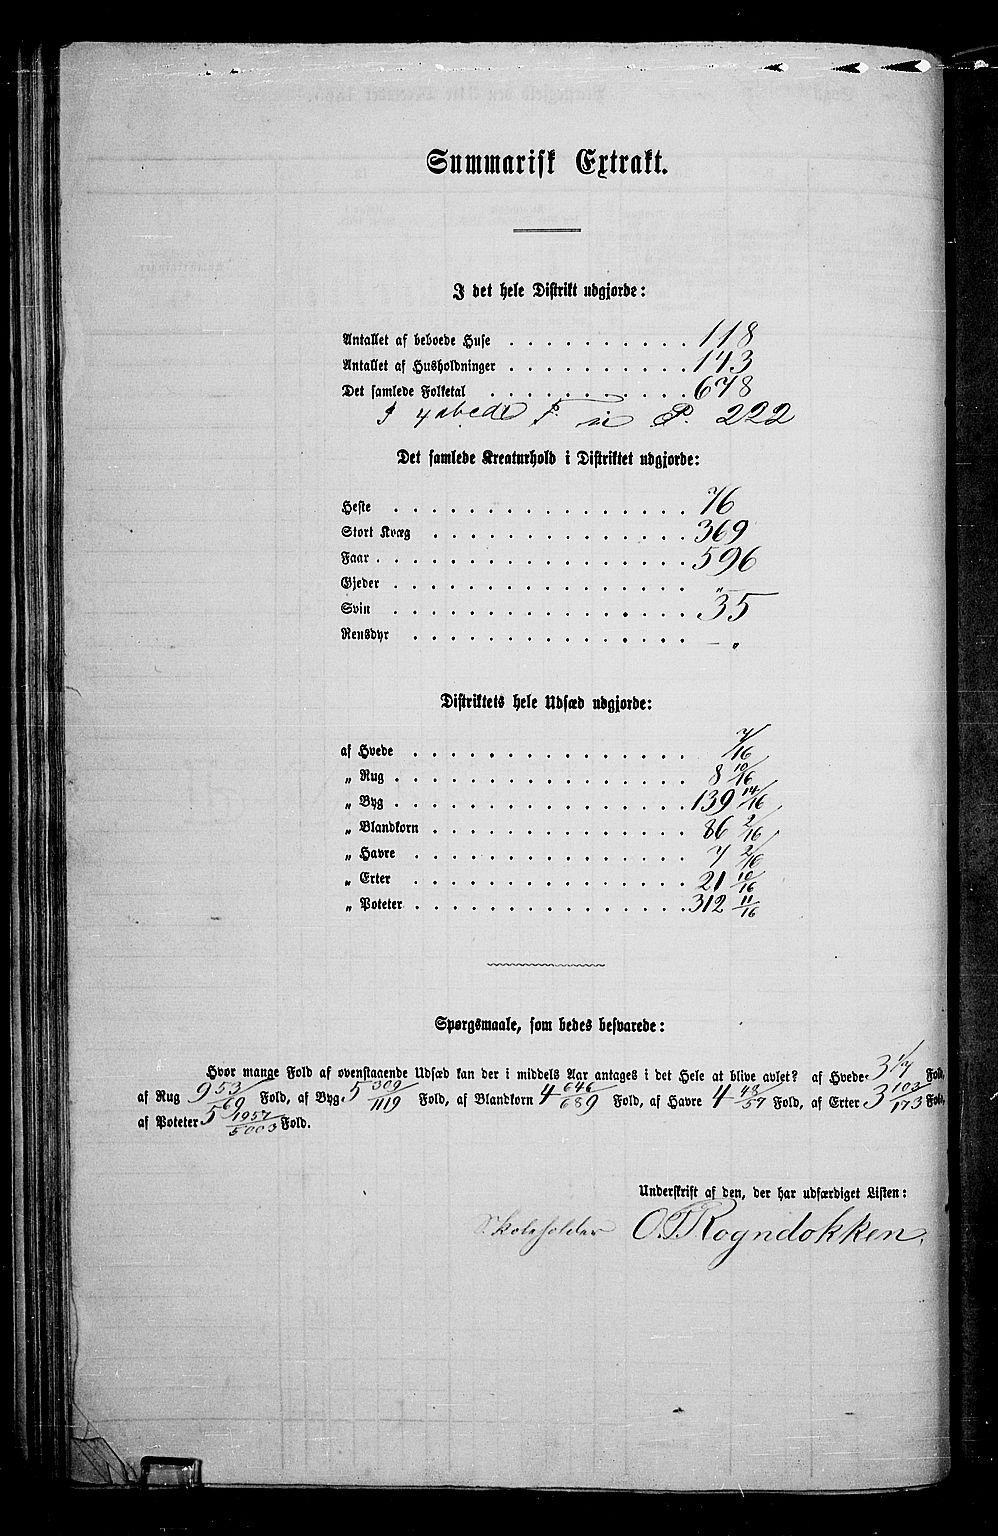 Summarisk Extrakt.
I det hele Distrikt udgjorde:
Antallet af beboede Huse . . . . . . . . . . 118
Antallet af Husholdninger . . . . . . . . . . 143
Det samlede Folketal . . . . . . . . . . 678
222
Det samlede Kreaturhold i Distriktet udgjorde:
Heste . . . . . . . . . . . . . . . . 76
Stort Kvæg . . . . . . . . . . . . . . 369
Faar . . . . . . . . . . . . . . . . . 596
Gjeder . . . . . . . . . . . . . . . "
Svin . . . . . . . . . . . . . . . . 35
Rensdyr . . . . . . . . . . . . . . . — "
Distriktets hele Udsæd udgjorde:
af Hvede . . . . . . . . . . . . . . . 7/16
„ Rug . . . . . . . . . . . . . . . . 8 10/16
„ Byg . . . . . . . . . . . . . . . . 139 14/16
„ Blandkorn . . . . . . . . . . . . . . 86 2/16
„ Havre . . . . . . . . . . . . . . . 7 2/16
„ Erter . . . . . . . . . . . . . . . 21 10/16
„ Poteter . . . . . . . . . . . . . . . 312 11/16
Spørgsmaale, som bedes besvarede:
Hvor mange Fold af ovenstaaende Udsæd kan der i middels Aar antages i det Hele at blive avlet? af Hvede 3 1/7 Fold,
af Rug 9 53/69 Fold, af Byg 5 309/1119 Fold, af Blandkorn 4 646/689 Fold, af Havre 4 43/57 Fold, af Erter 3 103/173 Fold,
af Poteter 5 1957/5003 Fold.
Underskrift af den, der har udfærdiget Listen:
Skoleholder O. T. Rogndokken.